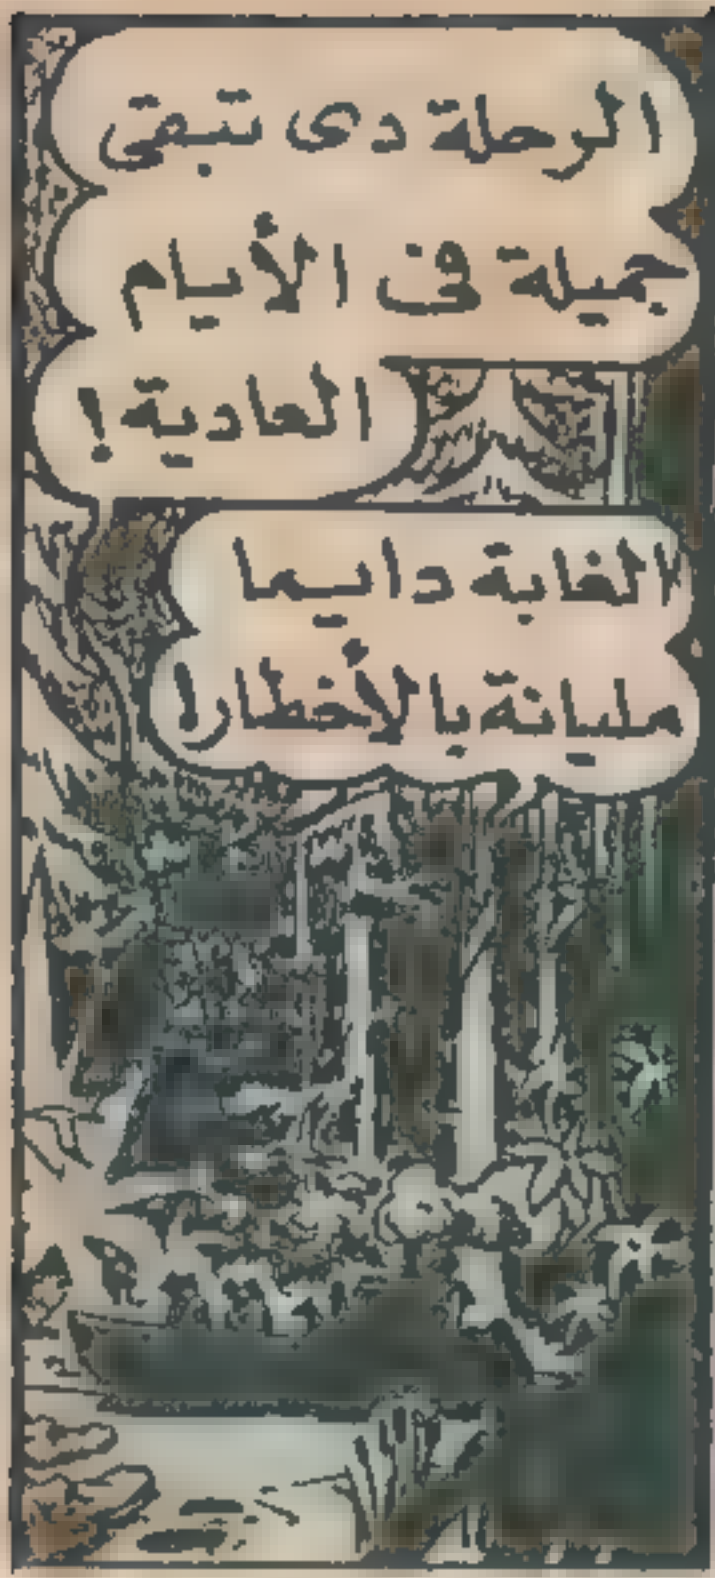 الرحلة دى تبقى
جميلة فى الأيام
العادية !
الغابة دايما
مليانة بالأخطار !